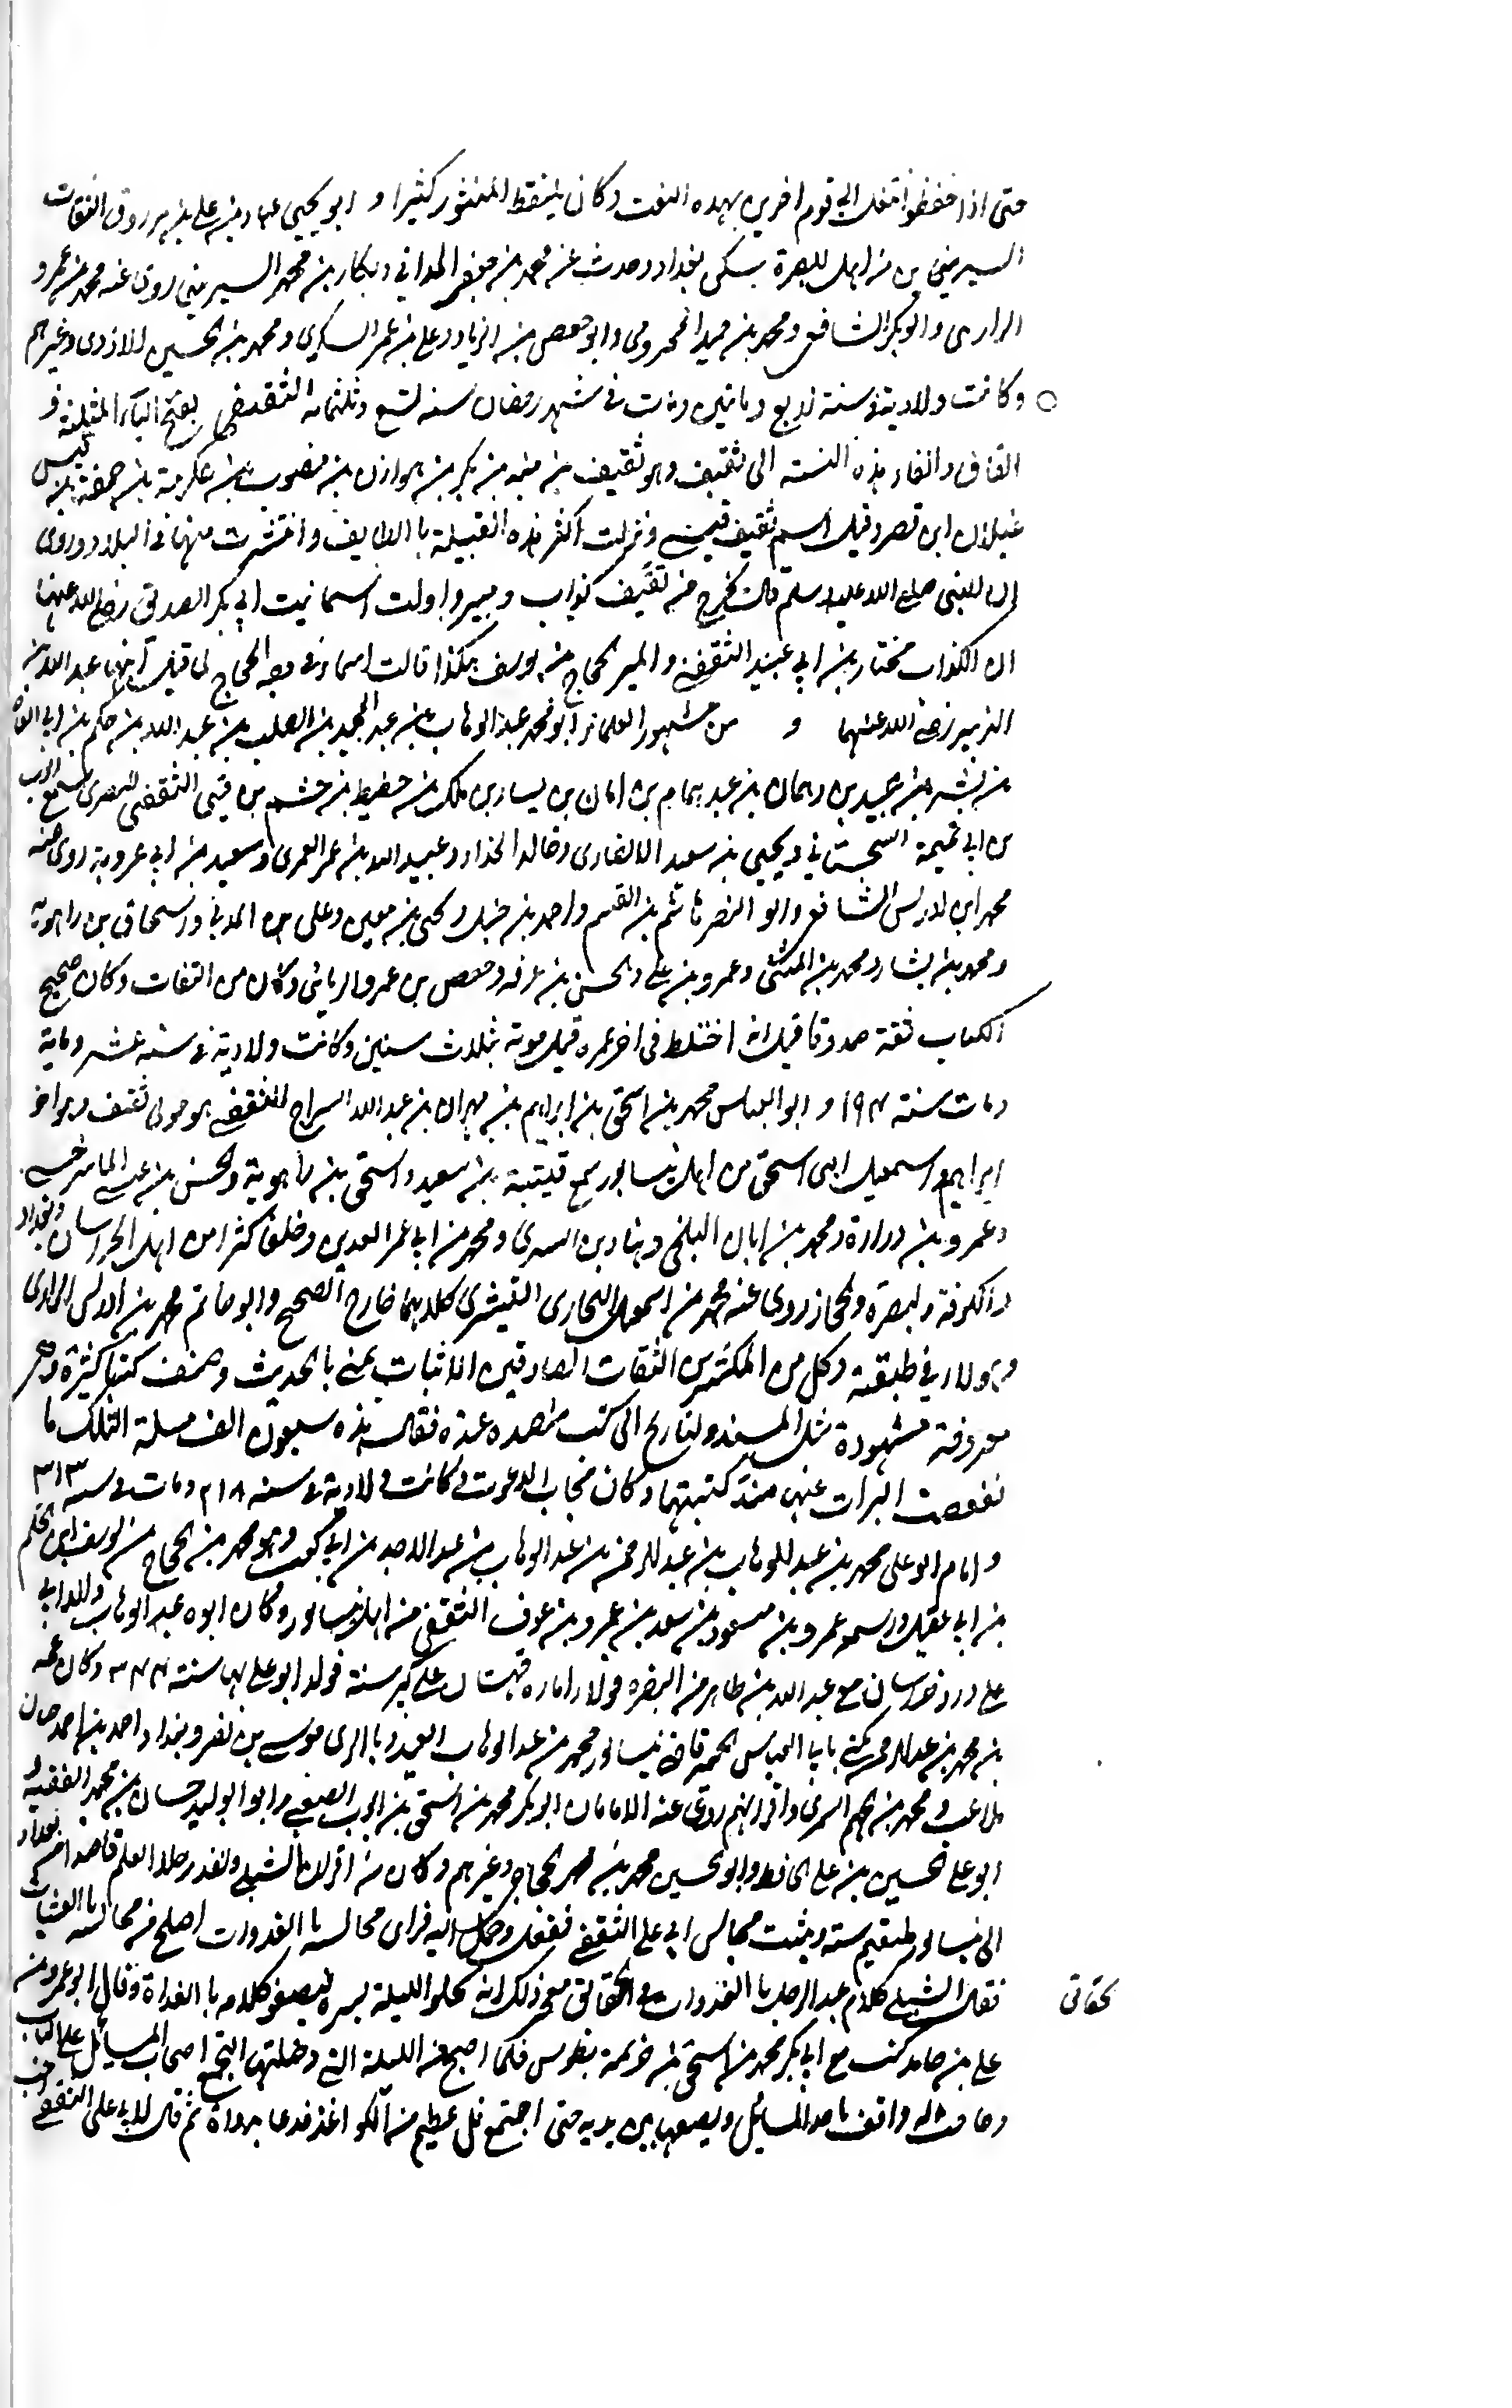 حتى اذا حفظوا انتقل الى قوم اخرين بهذه النعت وكان يلتقط المنثور كثيرا و ابو يحيى عباد بن علي بن مرزوق الثقات
السيريني من اهل البصرة سكن بغداد وحدث عن محمد بن جعفر المدائني وبكار بن محمد السيريني روى عنه محمد بن عمرو
الرازى وابوبكر الشافعي ومحمد بن حميد المخرومي وابو حفص بن الزيات وعلي بن عمر السكري ومحمد بن الحسين الازدى وغيرهم
وكانت ولادته في سنة اربع وماتين ومات في شهر رمضان سنه تسع وثلثمائه الثقفي بفتح الثاء المثلثة و
القاف والفاء هذه النسبه الى ثقيف وهو ثقيف بن منبه بن بكر بن هوازن بن منصور بن عكرمة بن خصفة بن قيس
غيلان ابن مضر وقيل اسم ثقيف قيسي ونزلت اكثر هذه القبيلة بالطايف وانتشرت منها في البلاد وروى
ان النبي صلى الله عليه وسلم قال يخرج من ثقيف كذاب ومبير واولت اسما بنت ابي بكر الصديق رضي الله عنهما
ان الكذاب مختار بن ابي عبيد الثقفي والمبير الحجاج بن يوسف هكذا قالت اسماء في وجه الحجاج لما قتل ابنها عبد الله بن
الزبير رضي الله عنهما و من مشهور العلماء ابو محمد عبد الوهاب بن عبد المجيد بن الصلت بن عبد الله بن حكم بن ابي العاص
بن بشر بن عبيد بن دهمان بن عبد همام بن ابان بن يسار بن ملك بن حطيط بن جشم بن قسي الثقفي البصرى سمع ايوب
بن ابي تميمة السجستاني ويحيى بن سعيد الانصارى وخالد الحذاء وعبيد الله بن عمر العمرى وسعيد بن ابي عروبة روى عنه
محمد ابن ادريس الشافعي وابو النضر هاشم بن القسم واحمد بن حنبل ويحيى بن معين وعلي بن المديني واسحاق بن راهويه
ومحمد بن بشار ومحمد بن المثنى وعمرو بن علي والحسن بن عرفه وحفص بن عمرو الربالي وكان من الثقات وكان صحيح
الكتاب ثقة صدوقا قيل انه اختلط في اخر عمره قبل موته بثلاث سنين وكانت ولادته في سنة عشر ومايه
ومات سنة ١٩٤ و ابو العباس محمد بن اسحق بن ابراهيم بن مهران بن عبد الله السراج الثقفي هو مولى ثقيف وهو اخو
ابراهيم واسمعيل ابني اسحق من اهل نيسابور سمع قتيبة بن سعيد واسحق بن راهوية والحسن بن عيسى الماسرجسي
وعمرو بن زرارة ومحمد بن ابان البلخي وهناد بن السرى ومحمد بن ابي عمر العدني وخلقا كثيرا من اهل الخراسان وبغداد
والكوفة والبصرة والحجاز روى عنه محمد بن اسمعيل البخارى القشيرى كلاهما خارج الصحيح وابو حاتم محمد بن ادريس الرازى
وهولاء في طبقته وكل من المكثرين الثقات الصادقين الاثبات عني بالحديث وصنف كتبا كثيرة وهي
معروفة مشهودة مثل المسند والتاريخ الى كتب منضده عنده فقال هذه سبعون الف مسلة لتلك ما
نفضت التراب عنها منذ كتبتها وكان مجاب الدعوت وكانت ولادته في سنه ٢١٨ ومات في سنه ٣١٣
و امام ابو علي محمد بن عبد الوهاب بن عبد الرحمن بن عبد الوهاب بن عبد الاحد بن ابي محمد وهو محمد بن الحجاج بن يوسف بن الحكم
بن ابي عقيل واسمه عمرو بن مسعود بن سعد بن عمرو بن عوف الثقفي من اهل نيسابور وكان ابوه عبد الوهاب
خراسان مع عبد الله بن طاهر من البصره فولاه اماره قهستان على كبر سنة فولد ابو علي بها سنة ٢٤٤ وكان عمه
بن محمد بن عبد الرحمن يكنى بابا العباس قاضي نيسابور محمد بن عبد الوهاب العبدى وبالرى موسى بن نصر وببغداد احمد بن حيان
ملاعب ومحمد بن الجهم السمرى واقرانهم روى عنه الامامان ابوبكر محمد بن اسحق بن ايوب الصبغي وابو الوليد حسان بن محمد الفقيه و
ابو علي الحسين بن علي الحافظ وابو الحسين محمد بن محمد الحجاج وغيرهم وكان من اقران الشبلي ولقد رحل العلم قاصدا من بغداد
الى نيسابور ليقيم سنة ويثبت مجالس ابي علي الثقفي ففعل وحمل اليه فراى مجالسه بالغدوات اصلح من مجالسه بالعشيات
فقال الشبلي كلام عبد الرجل بالغدوات في الحقائق مع ذلك انه يخلو الليلة بسره فيصفو كلامه بالغداة وقال ابو عمرو بن
حقائق
علي بن حامد كنت مع ابي بكر محمد بن اسحق بن خزيمة بطوس فلما اصبح من الليلة التي دخلتها اجتمع اصحاب المسائل على الباب
وياخذ المسائل ويضعها بين يديه حتى اجتمع تل عظيم من الكواغذ فدعا بدواة ثم قال لابي علي الثقفي